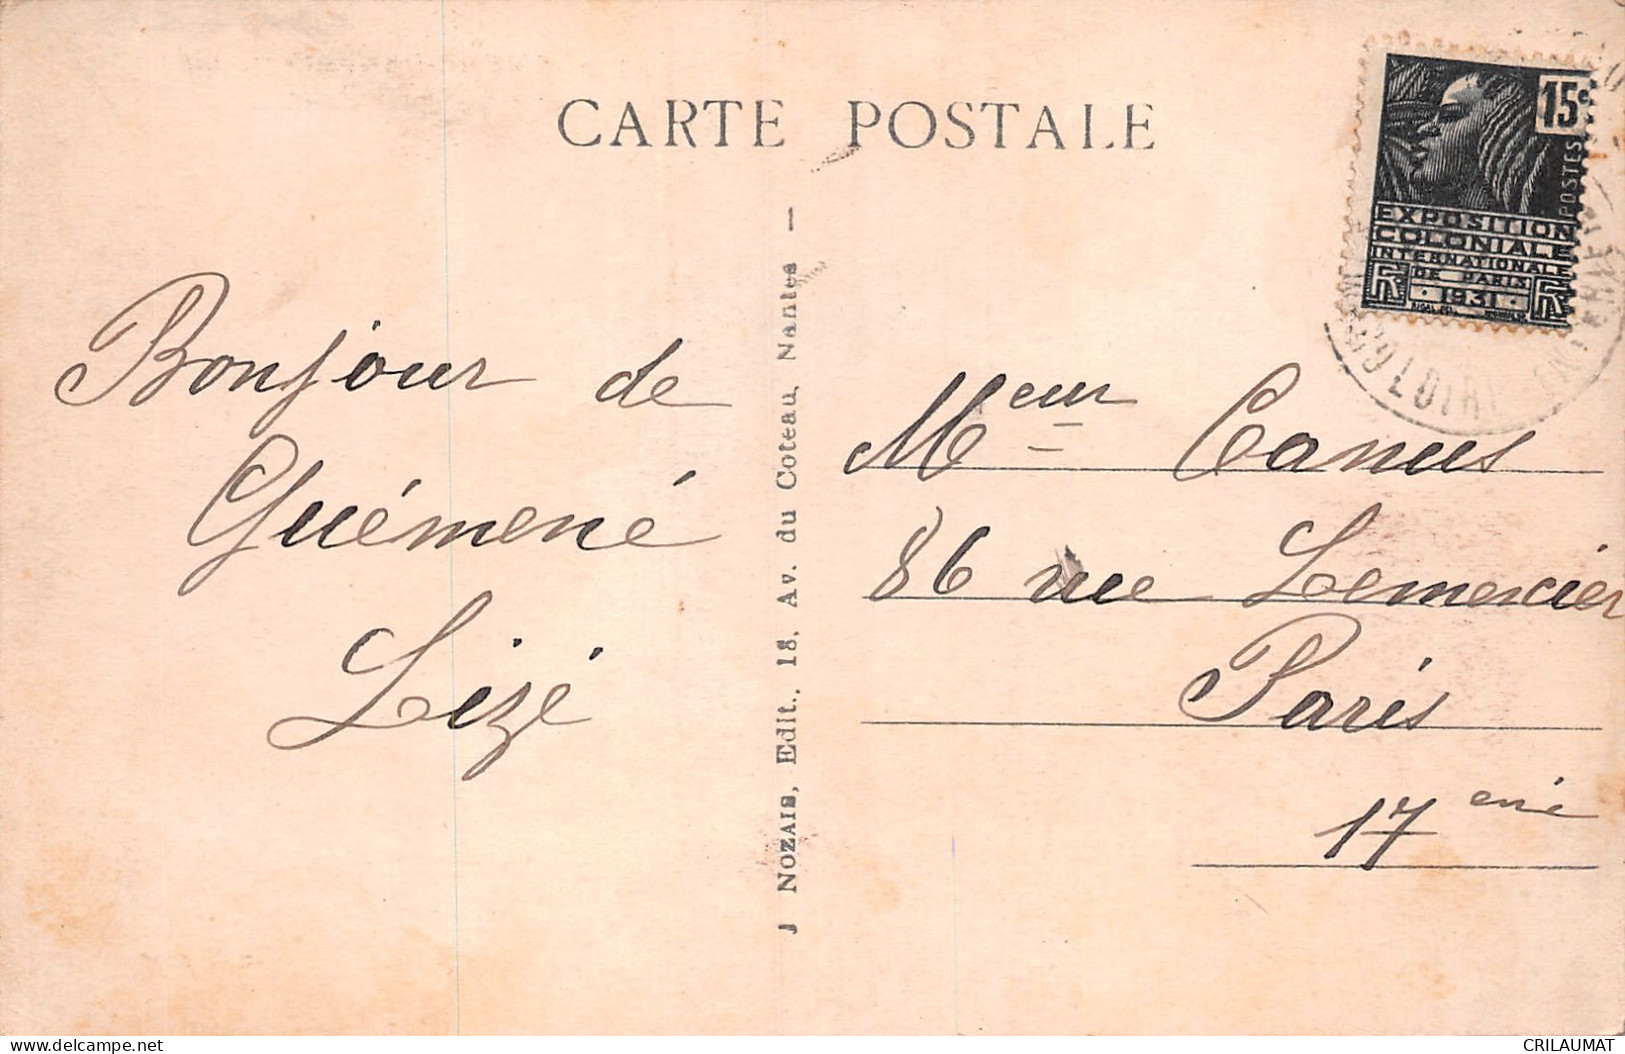 CARTE POSTALE
15c
POSTES
EXPOSITION
COLONIALE
INTERNATIONALE
DE PARIS
1931
RF RF
Bonjour de
Guémené
Lizé
J NOZAIS, Edit., 18, Av. du Coteau, Nantes —
Meur Canus
86 rue Lemercier
Paris
17 eme
CRILAUMAT